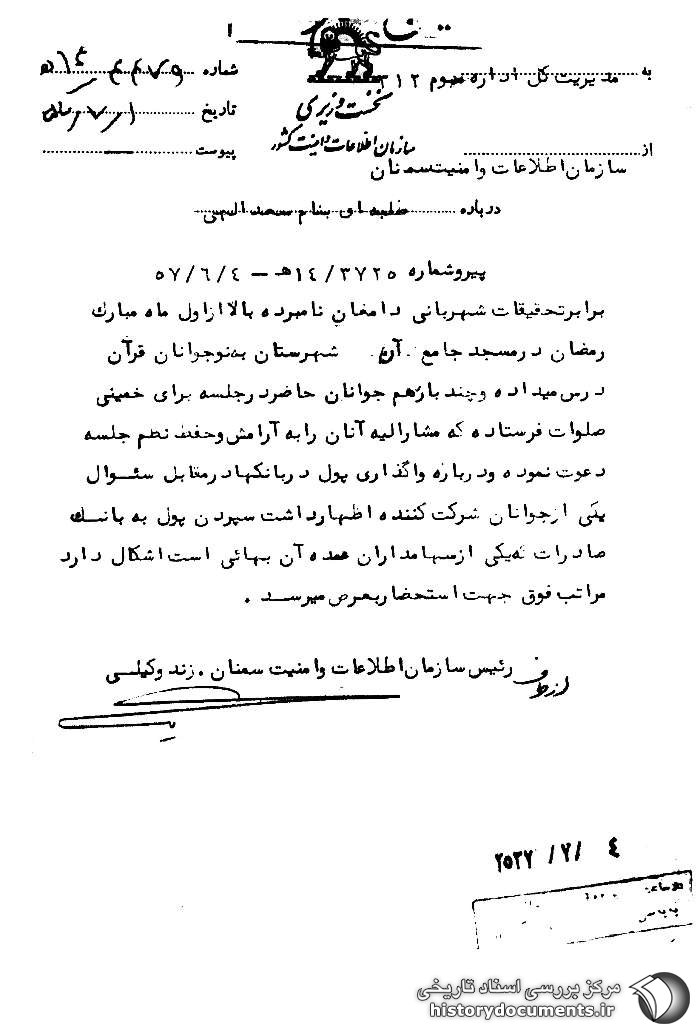 به مدیریت کل اداره سوم ۳۱۲
شماره ۴۴۷۹ / ۱۴ ه
نخست وزیری
تاریخ ۵۷/۷/۱
سازمان اطلاعات و امنیت کشور
پیوست
از سازمان اطلاعات و امنیت سمنان
درباره طلبه ای بنام سعدالهی
پیرو شماره ۱۴/۳۷۲۵ هـ – ۵۷/۶/۴
برابر تحقیقات شهربانی دامغان نامبرده بالا از اول ماه مبارک
رمضان در مسجد جامع آن شهرستان به نوجوانان قرآن
درس میداده و چند بار هم جوانان حاضر در جلسه برای خمینی
صلوات فرستاده که مشارالیه آنان را به آرامش و حفظ نظم جلسه
دعوت نموده و درباره واگذاری پول در بانکها در مقابل سئوال
یکی از جوانان شرکت کننده اظهار داشت سپردن پول به بانک
صادرات که یکی از سهامداران عمده آن بهائی است اشکال دارد
مراتب فوق جهت استحضار بعرض میرسد .
رئیس سازمان اطلاعات و امنیت سمنان . زند وکیلی
از طرف
۲۵۳۷ /۷/ ٤
مرکز بررسی اسناد تاریخی
historydocuments.ir